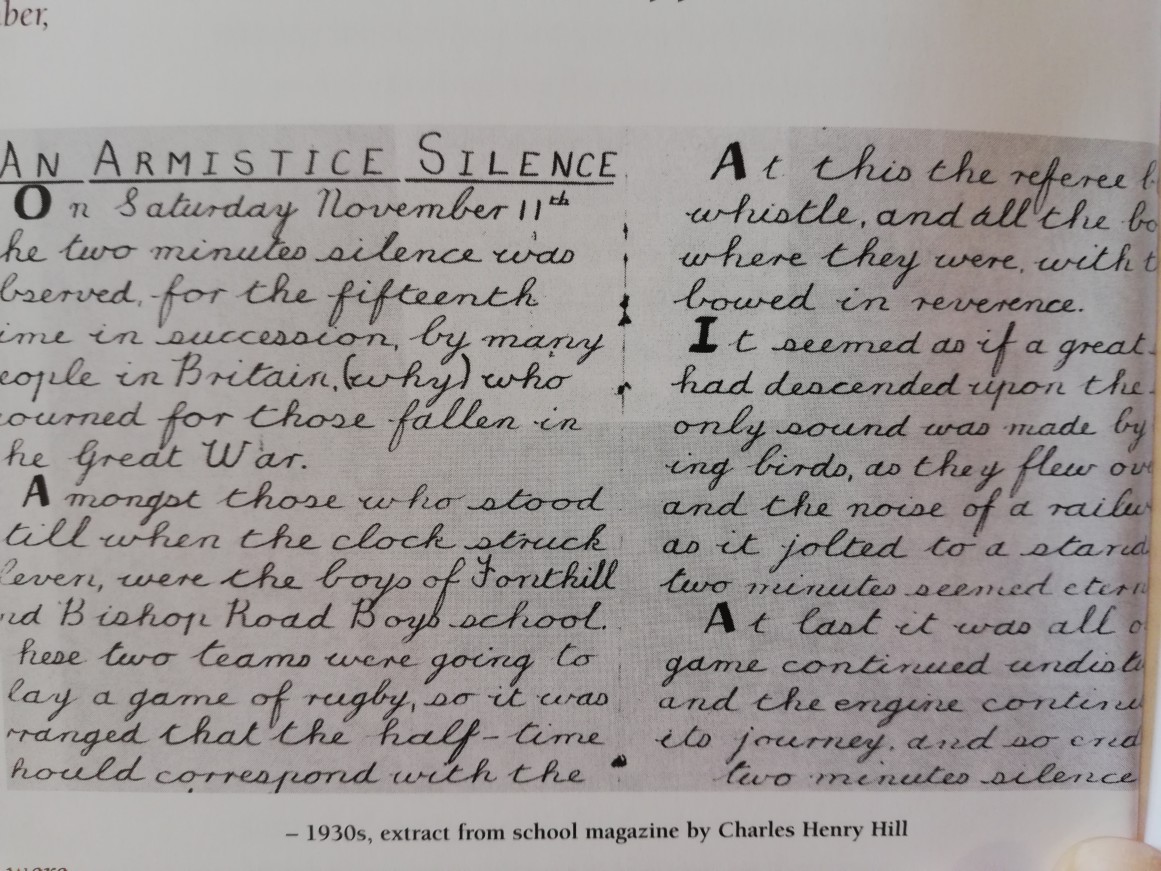 ber,
AN ARMISTICE SILENCE
On Saturday November 11th
he two minutes silence was
bserved, for the fifteenth
ime in succession, by many
eople in Britain, (why) who
ourned for those fallen in
he Great War.
Amongst those who stood
till when the clock struck
leven, were the boys of Fonthill
nd Bishop Road Boys school.
hese two teams were going to
lay a game of rugby, so it was
rranged that the half-time
hould correspond with the
At this the referee b
whistle, and all the bo
where they were, with t
bowed in reverence.
It seemed as if a great
had descended upon the
only sound was made by
ing birds, as they flew ov
and the noise of a railw
as it jolted to a stand
two minutes seemed etern
At last it was all o
game continued undist
and the engine continu
its journey, and so end
two minutes silence
– 1930s, extract from school magazine by Charles Henry Hill